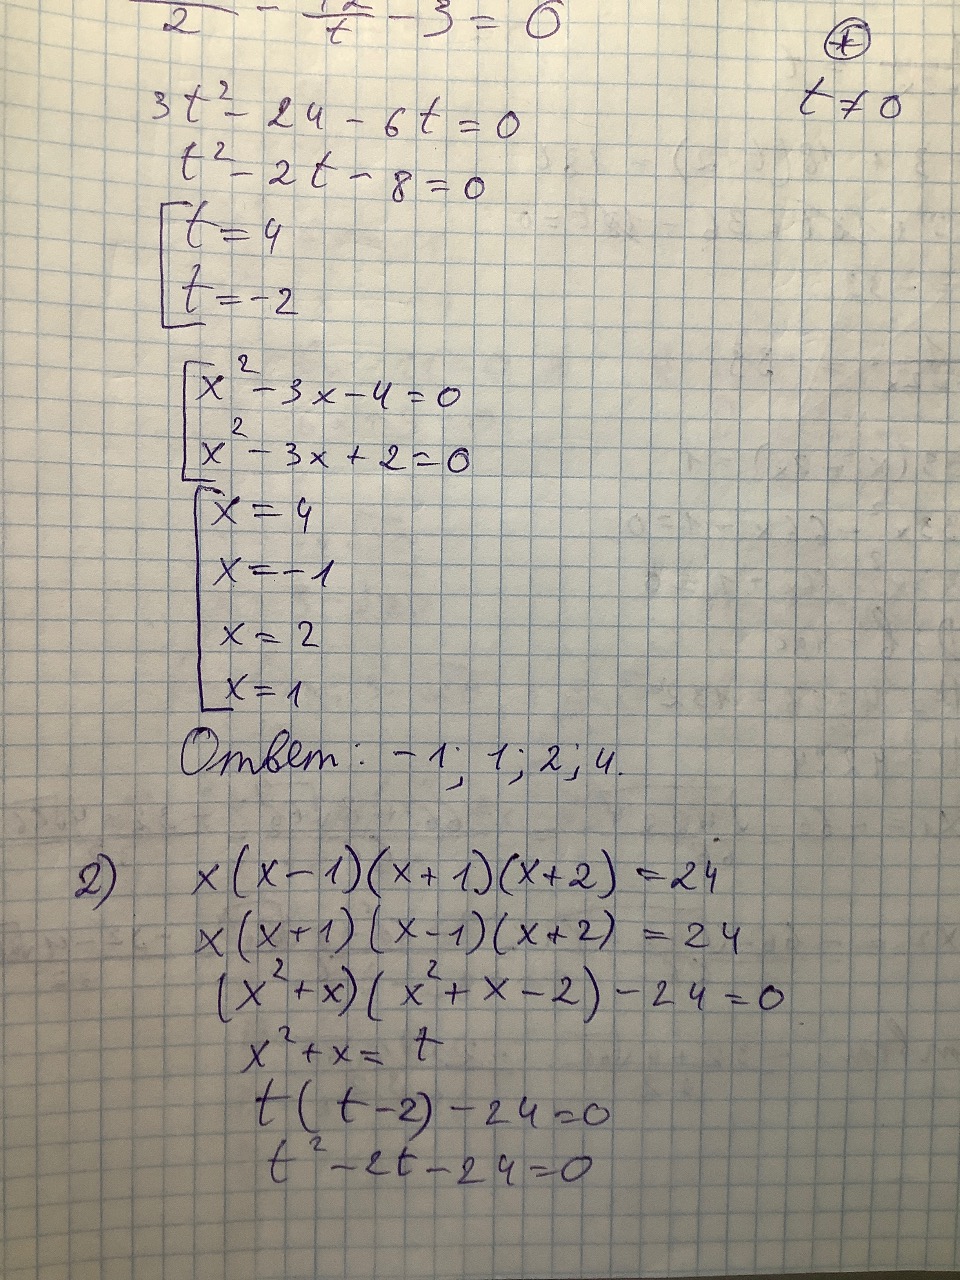 2 - 12/t - 3 = 0
⊕
t ≠ 0
3t² - 24 - 6t = 0
t² - 2t - 8 = 0
[ t = 4
t = -2
[ x² - 3x - 4 = 0
x² - 3x + 2 = 0
[ x = 4
x = -1
x = 2
x = 1
Ответ: -1; 1; 2; 4.
2) x(x-1)(x+1)(x+2) = 24
x(x+1)(x-1)(x+2) = 24
(x²+x)(x²+x-2) - 24 = 0
x²+x = t
t(t-2) - 24 = 0
t² - 2t - 24 = 0